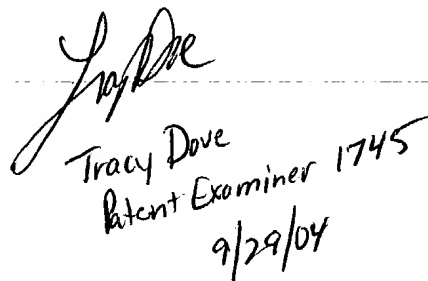 Tracy Dove
Tracy Dove
Patent Examiner 1745
9/29/04